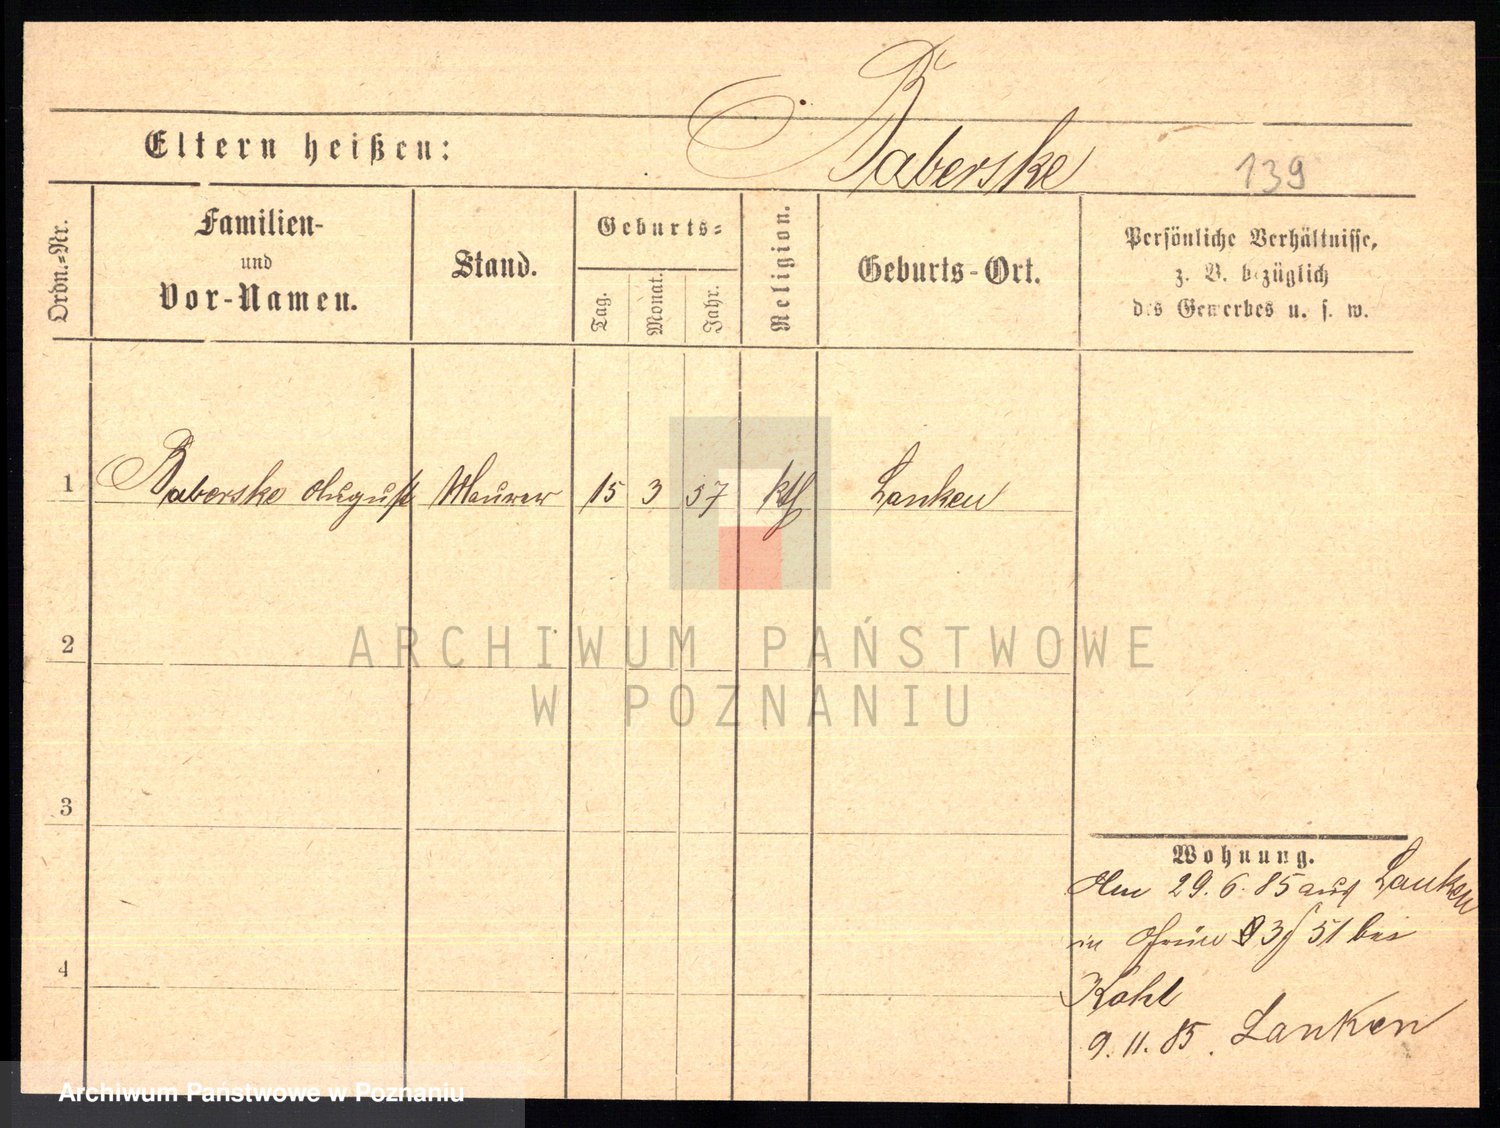 Eltern heißen: Baberske 139
Ordn.-Nr.
Familien-
und
Vor-Namen.
Stand.
Geburts-
Tag.
Monat.
Jahr.
Religion.
Geburts-Ort.
Persönliche Verhältnisse,
z. B. bezüglich
des Gewerbes u. s. w.
1 Baberske August Maurer 15 3 57 kth Lanken
2
3
4
ARCHIWUM PAŃSTWOWE
W POZNANIU
Wohnung.
Am 29.6.85 aus Lanken
in 3/51 bei
Kahl
9.11.85. Lanken
Archiwum Państwowe w Poznaniu